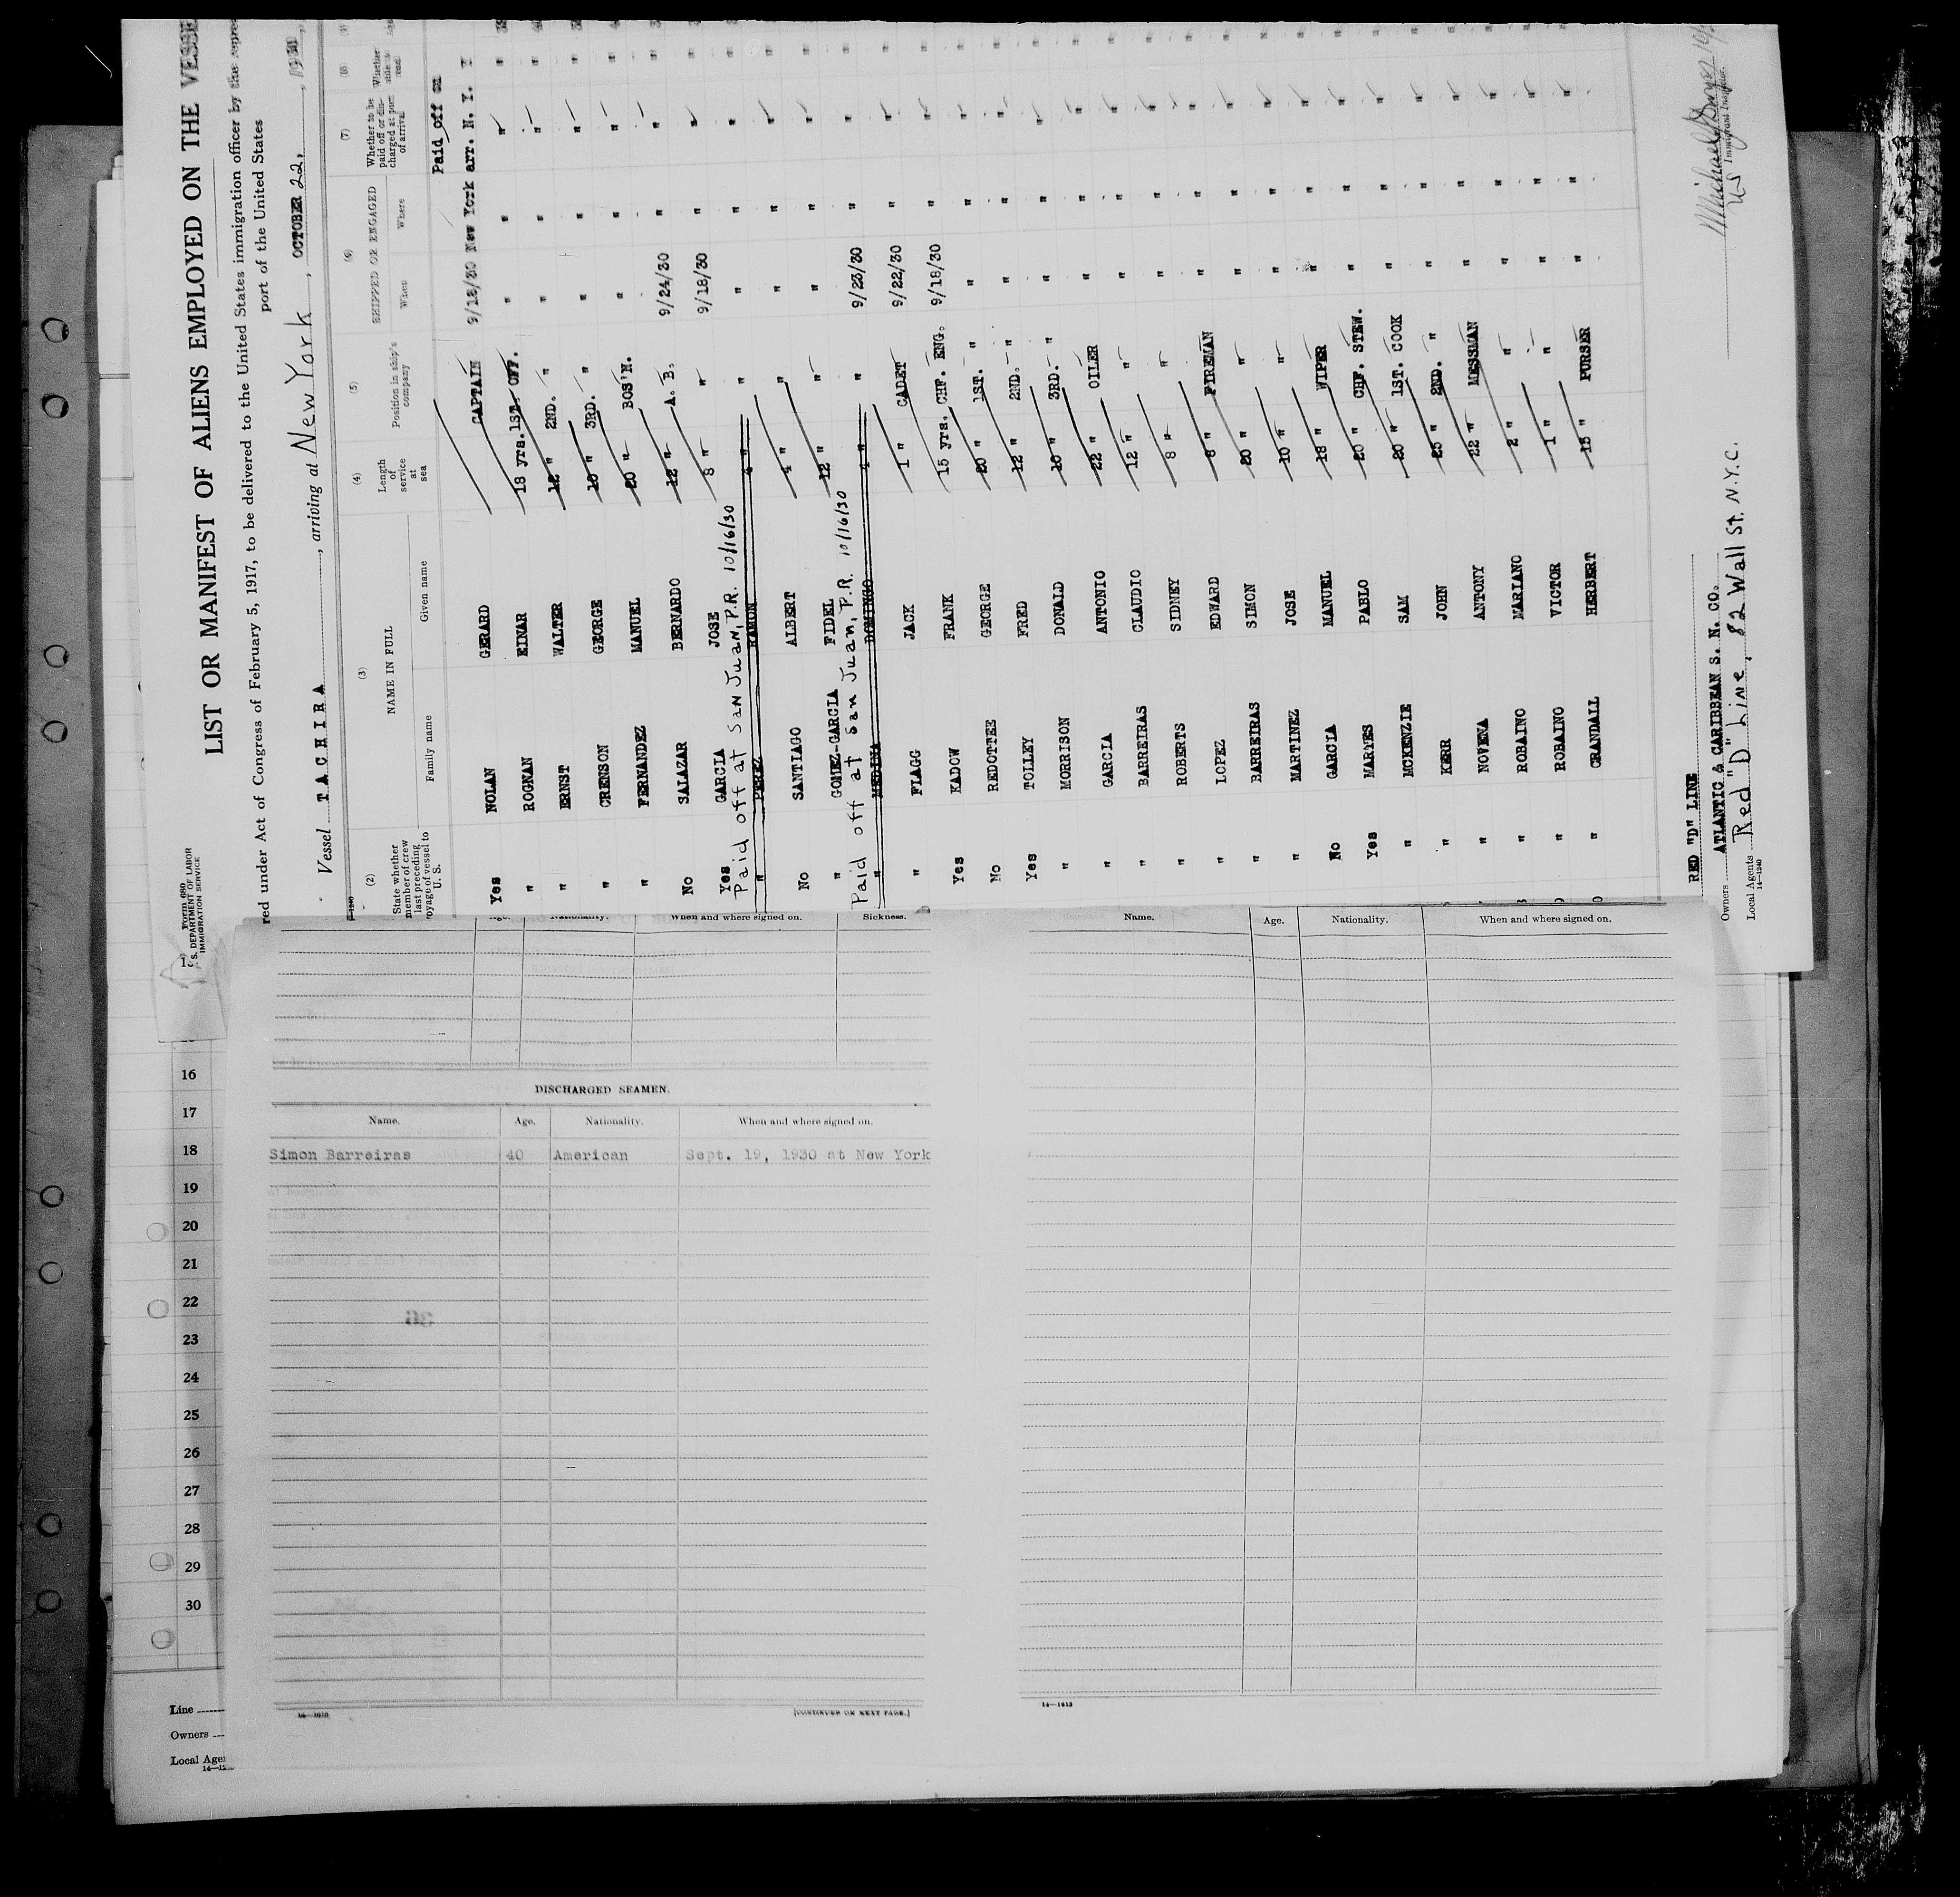 Form 680
U. S. DEPARTMENT OF LABOR
IMMIGRATION SERVICE
LIST OR MANIFEST OF ALIENS EMPLOYED ON THE VESSE
red under Act of Congress of February 5, 1917, to be delivered to the United States immigration officer by the repre
port of the United States
Vessel TACHIRA, arriving at New York, OCTOBER 22, 1930,
(2) (3) (4) (5) (6) (7) (8)
State whether member of crew last preceding voyage of vessel to U. S.
NAME IN FULL
Family name Given name
Length of service at sea
Position in ship's company
SHIPPED OR ENGAGED
When Where
Whether to be paid off or discharged at port of arrival
Whether able to read
Paid off on
Yes NOLAN GERARD CAPTAIN 9/18/30 New York arr. N. Y. Y
" ROGNAN EINAR 18 yrs. 1ST. OFF. " " "
" ERNST WALTER 12 " 2ND. " " " "
" CRENSON GEORGE 10 " 3RD. " " " "
" FERNANDEZ MANUEL 20 " BOS'N. " " "
No SALAZAR BERNARDO 12 " A. B. 9/24/30 " "
Yes GARCIA JOSE 8 " " 9/18/30 " "
Paid off at San Juan, P.R. 10/16/30
" PEREZ RAMON 4 " " " " "
No SANTIAGO ALBERT 4 " " " " "
" GOMEZ-GARCIA FIDEL 12 " " " " "
Paid off at San Juan, P.R. 10/16/30
" MEDINA DOMINGO 4 " " 9/23/30 " "
" FLAGG JACK 1 " CADET 9/22/30 " "
Yes KADOW FRANK 15 yrs. CHF. ENG. 9/18/30 " "
No REDOTTEE GEORGE 20 " 1ST. " " " "
Yes TOLLEY FRED 12 " 2ND. " " " "
" MORRISON DONALD 10 " 3RD. " " " "
" GARCIA ANTONIO 22 " OILER " " "
" BARREIRAS CLAUDIO 12 " " " " "
" ROBERTS SIDNEY 8 " " " " "
" LOPEZ EDWARD 8 " FIREMAN " " "
" BARREIRAS SIMON 20 " " " " "
" MARTINEZ JOSE 10 " " " " "
No GARCIA MANUEL 18 " WIPER " " "
Yes MARYES PABLO 20 " CHF. STEW. " " "
" MCKENZIE SAM 20 " 1ST. COOK " " "
" KERR JOHN 25 " 2ND. " " " "
" NOVENA ANTONY 22 " MESSMAN " " "
" ROBAINO MARIANO 2 " " " " "
" ROBAINO VICTOR 1 " " " " "
" CRANDALL HERBERT 15 " PURSER " " "
RED "D" LINE
Owners ATLANTIC & CARIBBEAN S. N. CO.
Local Agents Red "D" Line, 82 Wall St. N.Y.C.
14—1240
US Immigrant Inspector.
Age. Nationality. When and where signed on. Sickness.
DISCHARGED SEAMEN.
Name. Age. Nationality. When and where signed on.
Simon Barreiras 40 American Sept. 19, 1930 at New York
[CONTINUED ON NEXT PAGE.]
Name. Age. Nationality. When and where signed on.
14—1613
16
17
18
19
20
21
22
23
24
25
26
27
28
29
30
Line
Owners
Local Age